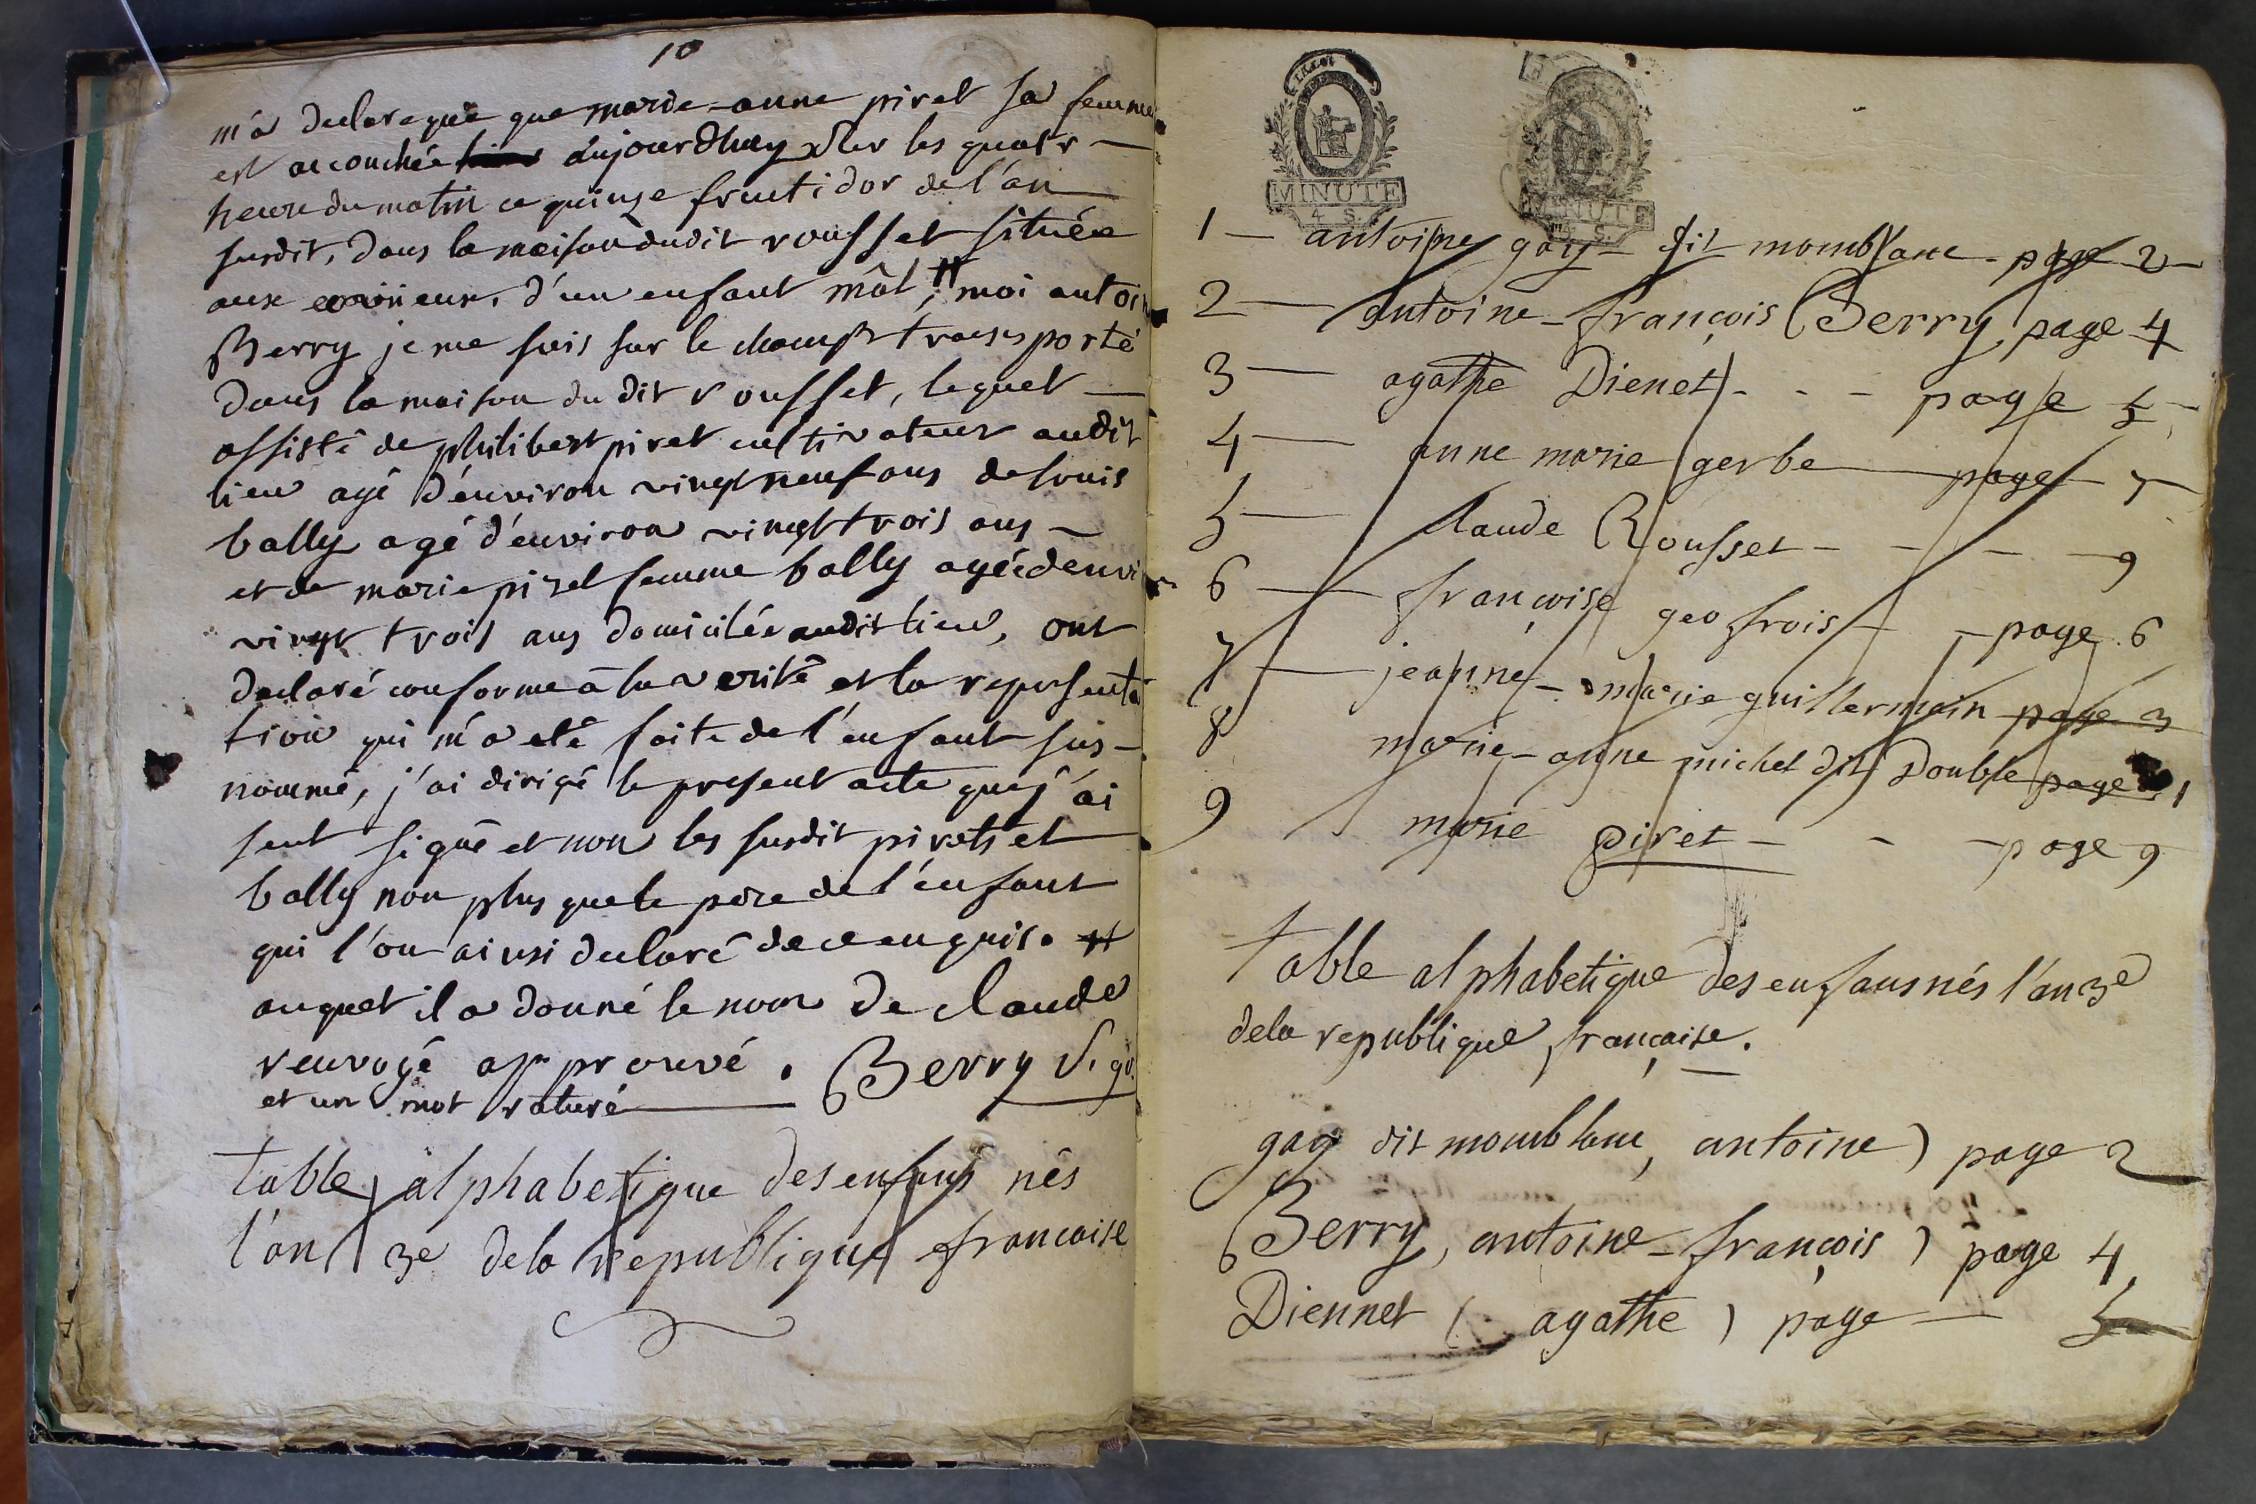 10
m'a declare que que marie-anne piret sa femme
est accouchée aujourdhuy sur les quatr
heure du matin ce quinze fructidor de l'an
susdit, dans la maison dudit rousset située
aux d'un enfant mâl, # moi antoin
Berry je me suis sur le champt transporté
dans la maison du dit rousset, lequel
assisté de philibert piret cultivateur audit
lieu agé d'environ vingt neuf ans de louis
bally agé d'environ vingt trois ans
et de marie piret femme bally agée denvi
vingt trois ans domicilée audit lieu, ont
declaré conforme à la verité et la representa
tion qui m'a eté faite de l'enfant sus-
nommé, j'ai dirigé le present acte que j'ai
seul signé et non les susdit pirets et
bally non plus que le pere de l'enfant
qui l'on ainsi declaré de ce enquis. #
auquel il a donné le nom de claude
renvoyé approuvé. Berry
et un mot raturé
table alphabetique des enfans nés
l'an 3e dela republique francoise
MINUTE
4 S.
MINUTE
4 S.
1 — antoine gay dit momblanc page 2
2 — antoine-françois Berry page 4
3 — agathe Dienet - - - page 5
4 — anne marie gerbe page 7
5 — claude Rousset - - - 9
6 — françoise geofrois - page 6
7 — jeanne-marie guillermain page 3
8 marie-anne michel dit Double page 1
9 marie piret - - page 9
table alphabetique des enfans nés l'an 3e
dela republique française.
gay dit momblanc, antoine) page 2
Berry, antoine-françois) page 4
Diennet (agathe) page — 5